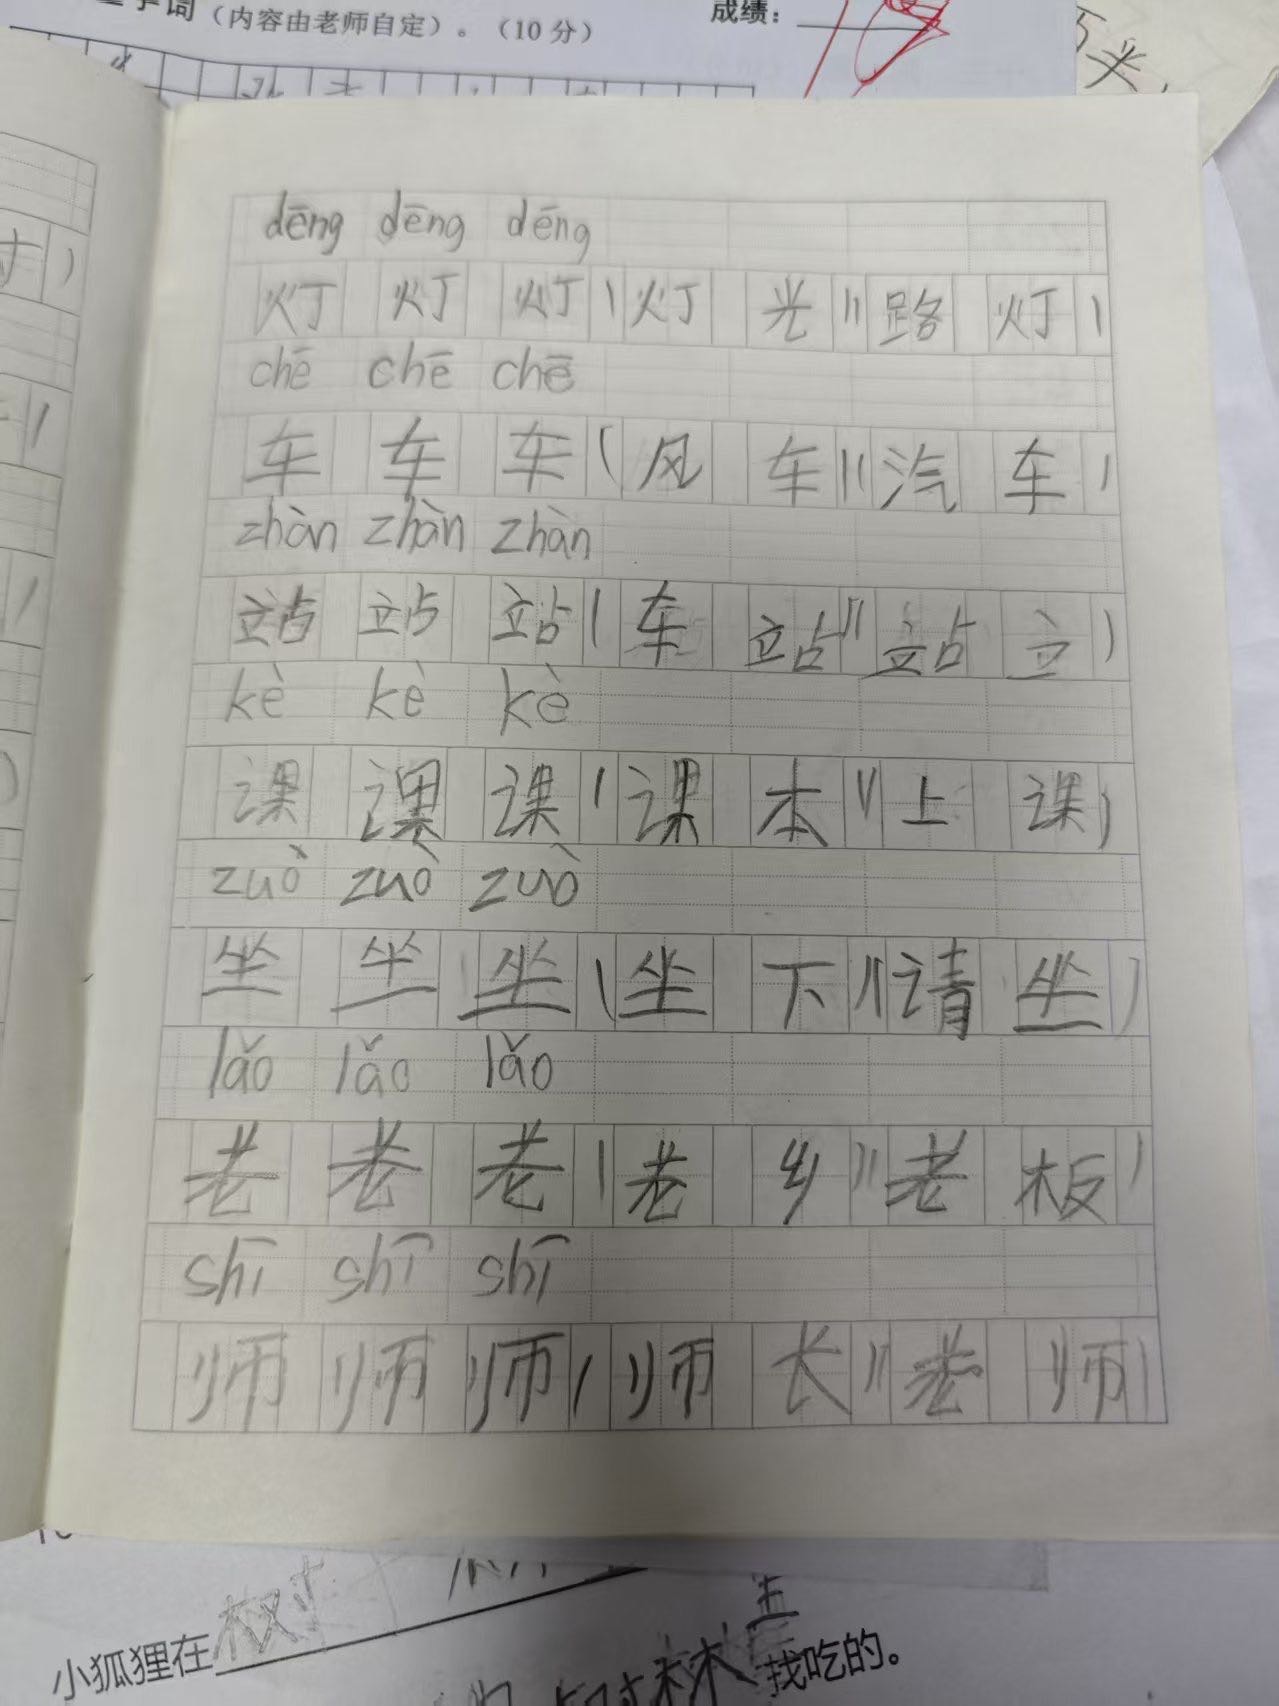 字词（内容由老师自定）。（10分） 成绩：
dēng dēng dēng
灯 灯 灯（灯 光）（路 灯）
chē chē chē
车 车 车（风 车）（汽 车）
zhàn zhàn zhàn
站 站 站（车 站）（站 立）
kè kè kè
课 课 课（课 本）（上 课）
zuò zuò zuò
坐 坐 坐（坐 下）（请 坐）
lǎo lǎo lǎo
老 老 老（老 乡）（老 板）
shī shī shī
师 师 师（师 长）（老 师）
小狐狸在
找吃的。